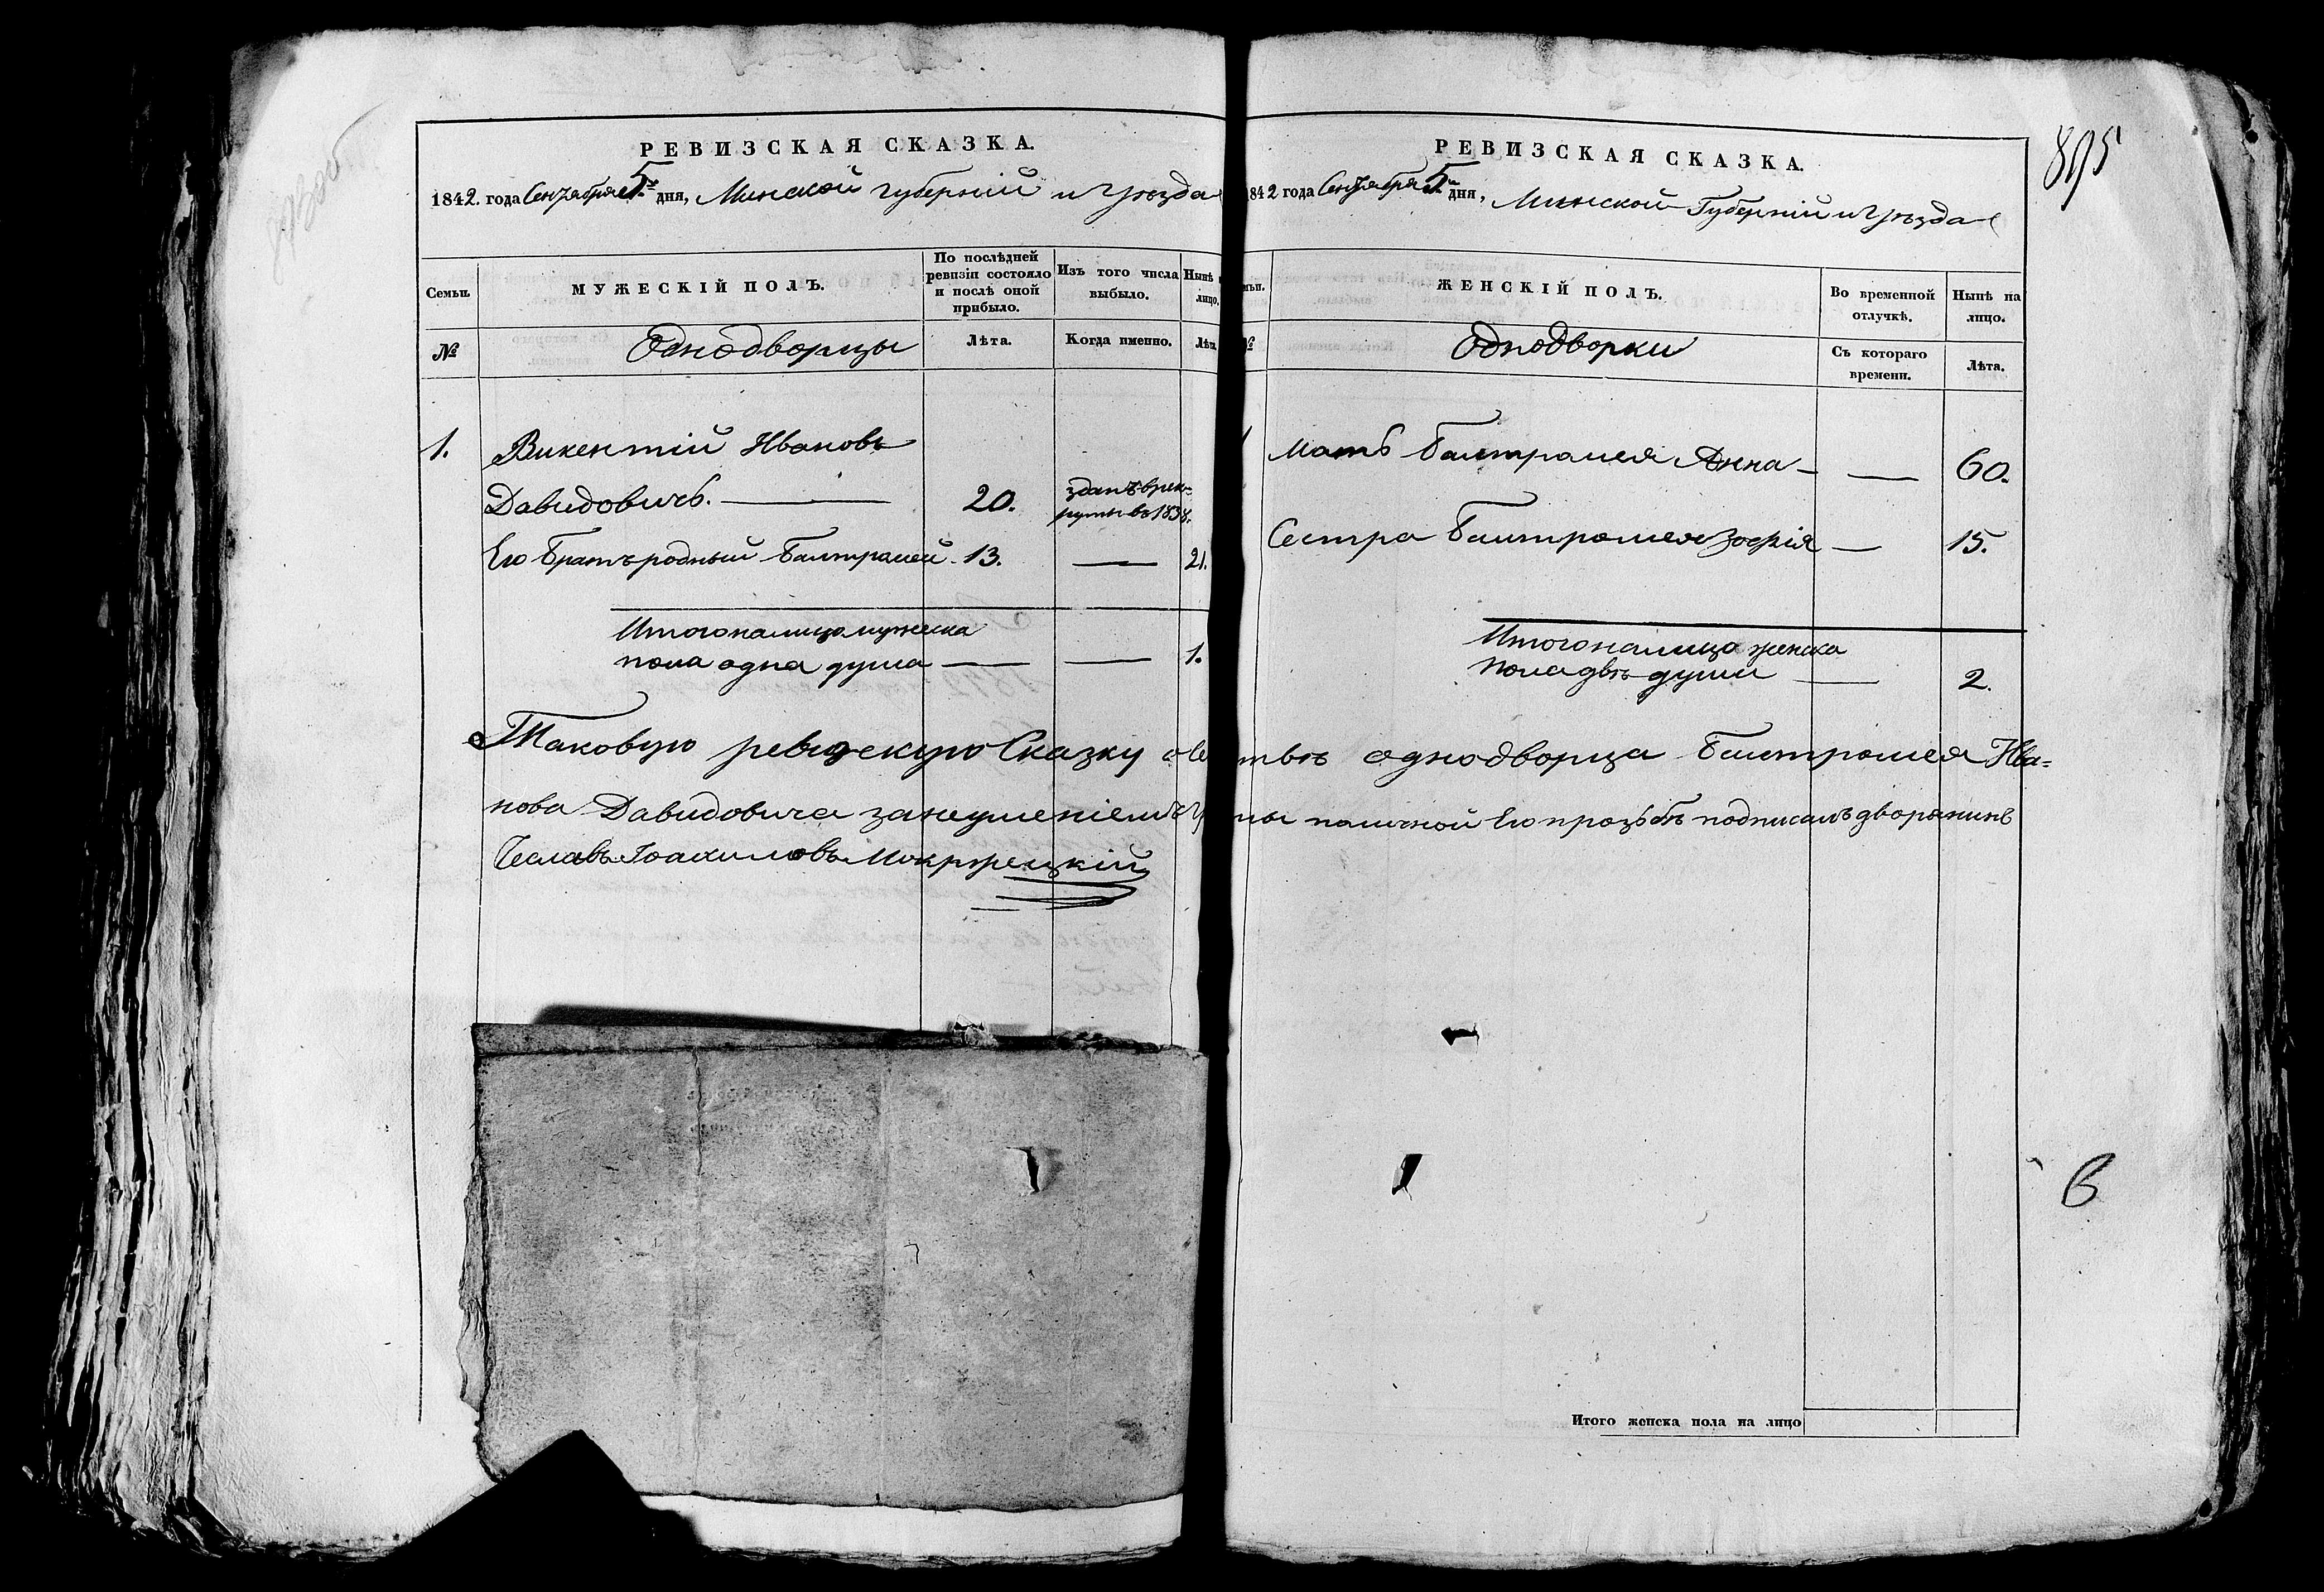 РЕВИЗСКАЯ СКАЗКА.
1842. года Сентября 5го дня, Минской губерніи и уѣзда
Семьи.
МУЖЕСКІЙ ПОЛЪ.
По послѣдней ревизіи состояло и послѣ оной прибыло.
Изъ того числа выбыло.
Нынѣ
лицо.
№
Однодворцы
Лѣта.
Когда именно.
Лѣта
1.
Викентій Ивановъ
Давидовичь.
20.
зданъ в рек-
руты въ 1838.
Его братъ родный Балтромей
13.
21.
Итого на лицо мужеска
пола одна душа
1.
РЕВИЗСКАЯ СКАЗКА.
842 года Сентября 5го дня, Минской Губерніи и уѣзда
895
ЖЕНСКІЙ ПОЛЪ.
Во временной отлучкѣ.
Нынѣ на лицо.
№
Однодворки
Съ котораго времени.
Лѣта.
Мать Балтромея Анна
60.
Сестра Балтромея Зофія
15.
Итого на лицо женска
пола двѣ души
2.
Таковую ревизскую Сказку о се тьѣ однодворца Балтромея Ива=
нова Давидовича за неуменіемъ гр ты по личной Его прозьбѣ подписалъ дворянинъ
Чеславъ Іоахимовъ Мокржецкій
Итого женска пола на лицо